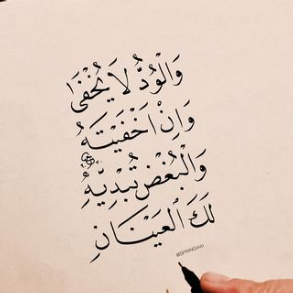 وَالْوُدُّ لَا يُخْفَىٰ
وَإِنْ اَخْفَيْتَهُ
وَالْبُغْضُ تُبْدِيْهِ
لَكَ الْعَيْنَانِ